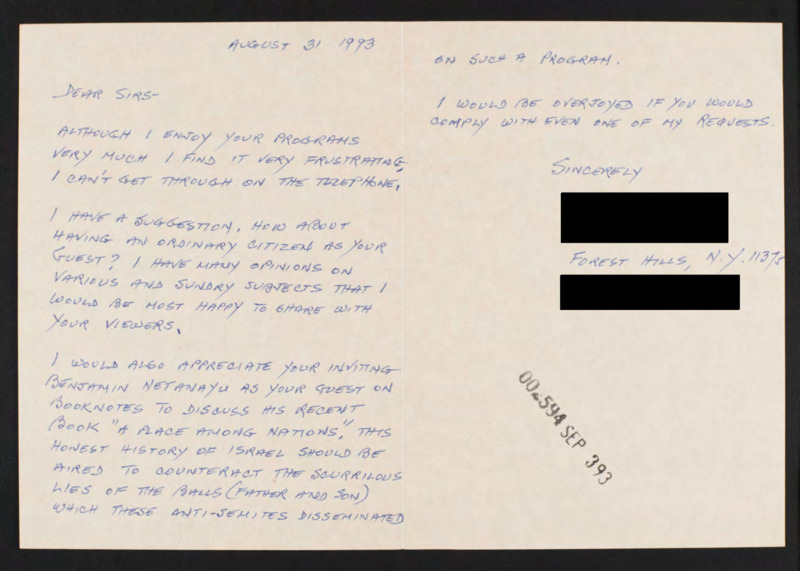 AUGUST 31 1993
DEAR SIRS-
ALTHOUGH I ENJOY YOUR PROGRAMS
VERY MUCH I FIND IT VERY FRUSTRATING,
I CAN'T GET THROUGH ON THE TELEPHONE.
I HAVE A SUGGESTION. HOW ABOUT
HAVING AN ORDINARY CITIZEN AS YOUR
GUEST? I HAVE MANY OPINIONS ON
VARIOUS AND SUNDRY SUBJECTS THAT I
WOULD BE MOST HAPPY TO SHARE WITH
YOUR VIEWERS.
I WOULD ALSO APPRECIATE YOUR INVITING
BENJAMIN NETANAYU AS YOUR GUEST ON
BOOKNOTES TO DISCUSS HIS RECENT
BOOK "A PLACE AMONG NATIONS." THIS
HONEST HISTORY OF ISRAEL SHOULD BE
AIRED TO COUNTERACT THE SCURRILOUS
LIES OF THE BALLS (FATHER AND SON)
WHICH THESE ANTI-SEMITES DISSEMINATED
ON SUCH A PROGRAM.
I WOULD BE OVERJOYED IF YOU WOULD
COMPLY WITH EVEN ONE OF MY REQUESTS.
SINCERELY
FOREST HILLS, N.Y. 11375
002594 SEP 393